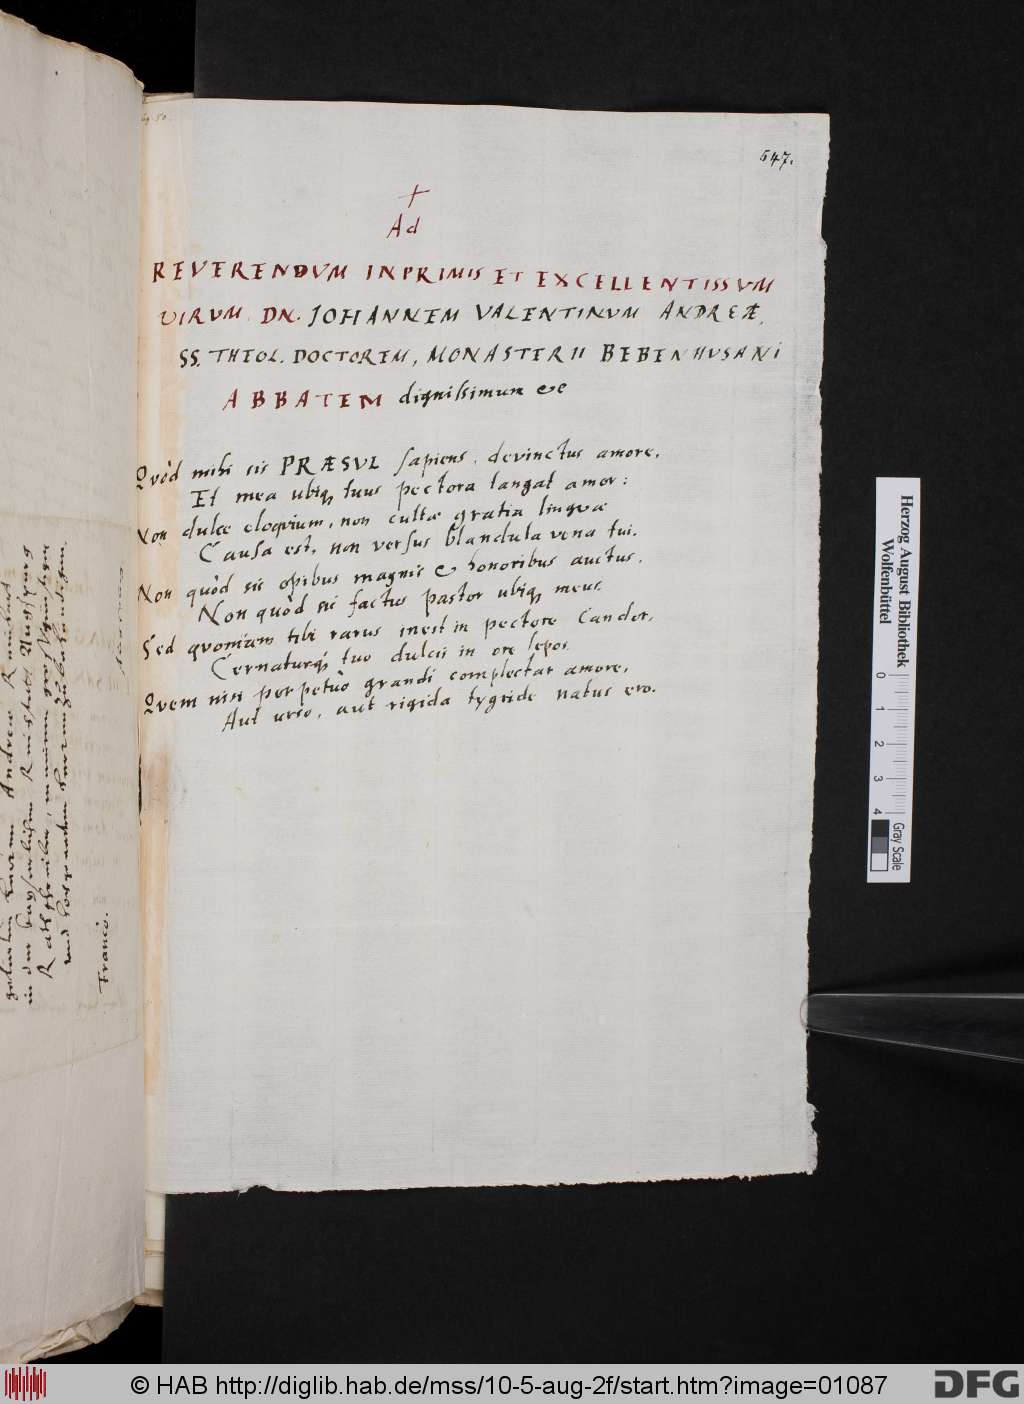 547.
+
Ad
REVERENDUM INPRIMIS ET EXCELLENTISSVM
VIRUM DN. JOHANNEM VALENTINUM ANDREÆ,
SS. THEOL. DOCTOREM, MONASTERII BEBENHUSANI
ABBATEM dignissimum &c
Quòd mihi sis PRÆSVL sapiens, devinctus amore,
Et mea ubiq, tuus pectora tangat amor:
Non dulce eloqvium, non cultæ gratia lingvæ
Causa est, non versus blandula vena tui.
Non quòd sis opibus magnis & honoribus auctus,
Non quòd sis factus pastor ubiq, meus.
Sed qvoniam tibi rarus inest in pectore Candor,
Cernaturq, tuo dulcis in ore lepos.
Qvem nisi perpetuò grandi complectar amore,
Aut urso, aut rigida tygride natus ero.
Franco.
Herzog August Bibliothek
Wolfenbüttel
0 1 2 3 4
Gray Scale
© HAB http://diglib.hab.de/mss/10-5-aug-2f/start.htm?image=01087
DFG